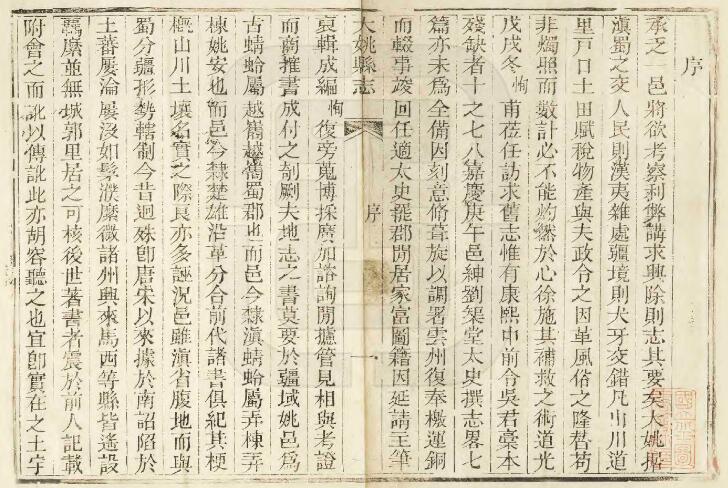 序
承乏一邑將欲考察利弊講求興除則志其要矣大姚居
滇蜀之交人民則漢夷雜處疆境則犬牙交錯凡山川道
里戸口土田賦稅物產與夫政令之因革風俗之隆替苟
非燭照而數計必不能灼然於心徐施其補救之術道光
戊戌冬恂甫莅任訪求舊志惟有康熙中前令吳君槀本
殘缺者十之七八嘉慶庚午邑紳劉榮堂太史撰志畧七
篇亦未爲全備因刻意脩葺旋以調署雲州復奉檄運銅
而輟事竣回任適太史罷郡閒居家富圖籍因延請主筆
大姚縣志 序 一
裒輯成編恂復旁蒐博採廣加諮詢閒攄管見相與考證
而商搉書成付之剞劂夫地志之書莫要於疆域姚邑爲
古蜻蛉屬越嶲越嶲蜀郡也而邑今隸滇蜻蛉屬弄棟弄
棟姚安也而邑今隸楚雄沿革分合前代諸書俱紀其梗
槪山川土壤名實之際良亦多誣況邑雖滇省腹地而與
蜀分疆形勢轄制今昔迥殊卽唐宋以來據於南詔陷於
土蕃屢淪屢沒如髳濮縻徵諸州興來馬西等縣皆遙設
羈縻並無城郭里居之可核後世著書者震於前人記載
附會之而訛以傳訛此亦胡容聽之也宜卽實在之土宇